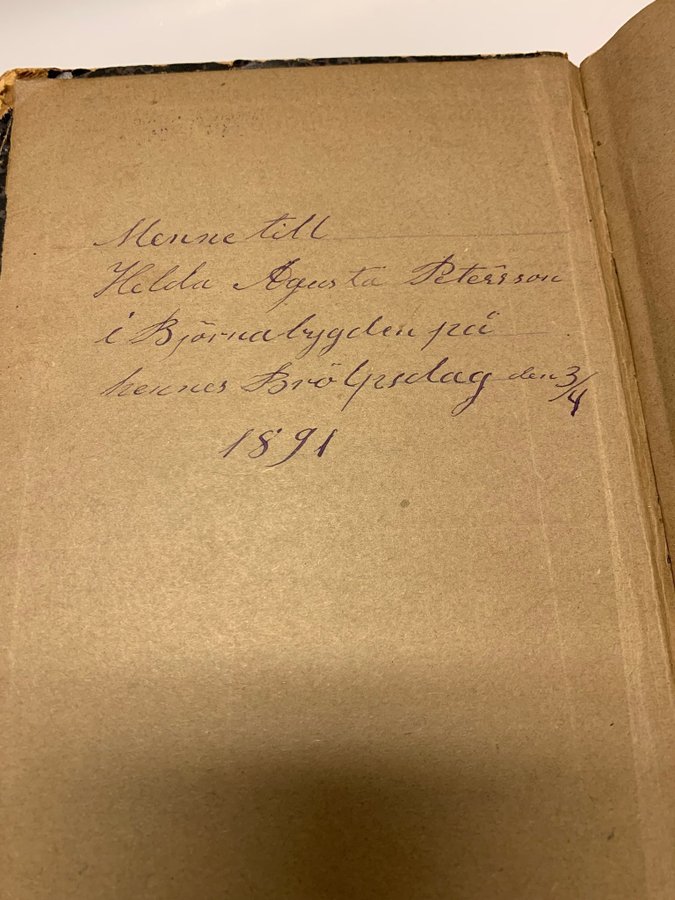 Menne till
Helda Agusta Petersson
i Björnabygden på
hennes Brölpsdag den 3/4
1891